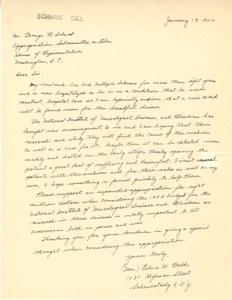 SCHWABE COLL.
January 17, 1952
Mr. George B. Schwabe
Appropriations Subcommittee on Labor
House of Representatives
Washington, D.C.
Dear Sir:
My husband has had Multiple Sclerosis for more than eight years
and is now hospitalized as he is in a condition that he must
constant, hospital care so I am especially anxious that a cure will
be found soon for this disease.
The National Institute of Neurological Diseases and Blindness has
brought new encouragement to me and I am hoping that there
research and study they will find the cause of the disease
as well as a cure for it. Maybe then it can be detected more
readily and halted in the early stages thereby sparing the
patient a great deal of suffering and discomfort. I want several
patients with this
us, I hope something is found quickly to help them.
Please support an expanded appropriation for eight
million dollars when considering the 1953 budget for the
National Institute of Neurological Diseases and Blindness as
research in these diseases is vitally important to all
Americans both in peace and war.
Thanking you for your kindness in giving a special
thought when considering this appropriation.
Yours truly,
(Mrs.) Edwin M.
1037 Street
Schenectady 6, N.Y.